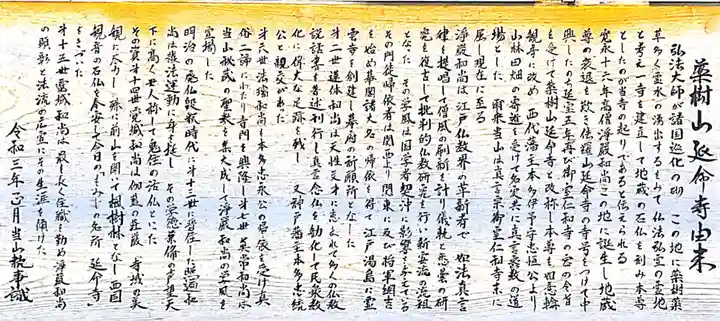 薬樹山延命寺由来
弘法大師が諸国巡化の砌 この地に薬樹薬
草多く霊水の湧出するをみて 仏法弘宣の霊地
と考え一寺を建立して地蔵の石仏を刻み本尊
としたのが当寺の起りであると伝えられる
寛永十六年高僧浄厳和尚この地に誕生し地蔵
尊の衰退を歎き 延命寺の寺号をつけて中
興した 延宝五年再び御室仁和寺の宮の令旨
を受けて薬樹山延命寺と改称し本尊を如意輪
観音に改め 西代藩主本多伊予守忠恒公より
山林田畑の寄進を受けて名実共に真言教教の道
場とした 爾来当山は真言宗御室仁和寺末に
属し現在に至る
浄厳和尚は江戸仏教界の革新者で 如法真言
律を提唱して僧風の刷新を計り儀軌と悉曇の研
究を復古して批判的仏教研究を行い新安流の流祖
となった その学風は国学者契沖に影響を与えている
その門徒帰依者は関西より関東に及び将軍綱吉
を始め幕閣諸大名の帰依を得て江戸湯島に霊
雲寺を創建し幕府の祈願所となした
第二世蓮体和尚は天性文才に恵まれて多くの仏教
説話集を著述刊行し真言念仏を勧化して民衆教
化に偉大な足跡を残し 又神戸藩主本多忠統
公と親交があった
第六世法瑞和尚は本多忠永公の帰依を受け真
俗二諦にわたり寺門を興隆し第七世 常和尚は
当山秘蔵の聖教を集大成して浄厳和尚の学風を
宣揚した
明治の廃仏毀釈時代に第十三世に晋住した照遍和
尚は護法運動に身を挺し その学徳兼備の声望天
下に高く世に称して鬼住の活仏といった
その資第十四世覚城和尚は伽藍の荘厳 寺域の美
観に尽力し 殊に前山を開いて楓樹林となし西国
観音の石仏を奉安して今日の「もみじの名所 延命寺」
の基をきづいた
第十三世霊城和尚は最も長く住職を勤め浄厳和尚
の顕彰と法流の広宣にその生涯を傾けた
令和三年正月 当山執事識